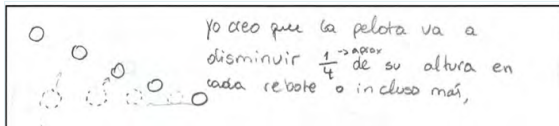 yo creo que la pelota va a
disminuir 1/4 →aprox de su altura en
cada rebote o incluso mas,